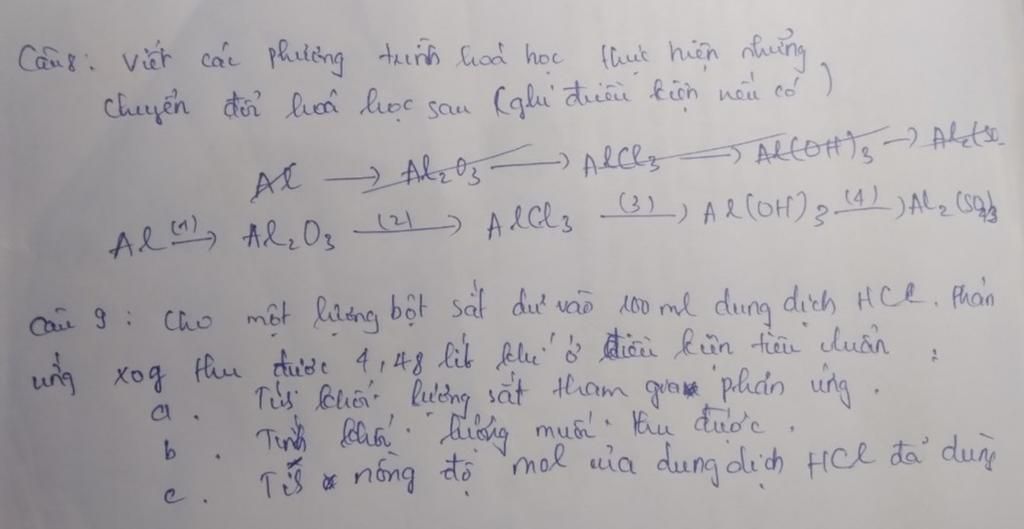 Câu 8: Viết các phương trình hoá học thực hiện những
chuyển đổi hoá học sau (ghi điều kiện nếu có)
Al → Al₂O₃ → AlCl₃ → Al(OH)₃ → Al₂(SO
Al (1)→ Al₂O₃ (2)→ AlCl₃ (3)→ Al(OH)₃ (4)→ Al₂(SO₄)₃
Câu 9: Cho một lượng bột sắt dư vào 100 ml dung dịch HCl. Phản
ứng xog thu được 4,48 lít khí ở điều kiện tiêu chuẩn :
a. Tính khối lượng sắt tham gia phản ứng.
b. Tính khối lượng muối thu được.
c. Tính nồng độ mol của dung dịch HCl đã dùng